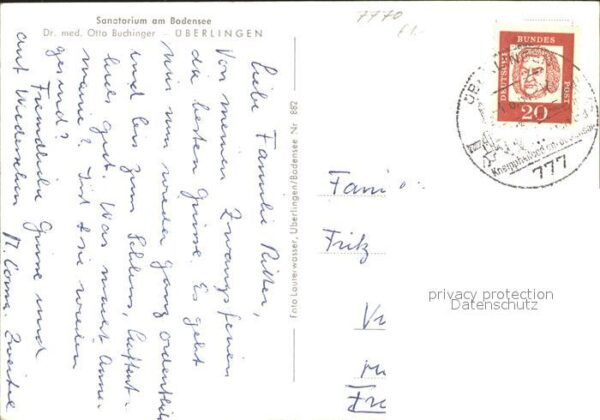 Sanatorium am Bodensee
Dr. med. Otto Buchinger - ÜBERLINGEN
7770
Liebe Familie Ritter,
Von meinen Zwangsferien
die besten Grüsse. Es geht
mir nun wieder ganz ordentlich
und bis zum Schluss, hoffent-
lich gut. Was macht Anne-
marie? Sind sie wieder
gesund?
Freundliche Grüsse und
auf Wiedersehen
Foto Lauterwasser, Überlingen/Bodensee Nr. 882
DEUTSCHE BUNDES POST
20
777
Fami
Fritz
privacy protection
Datenschutz